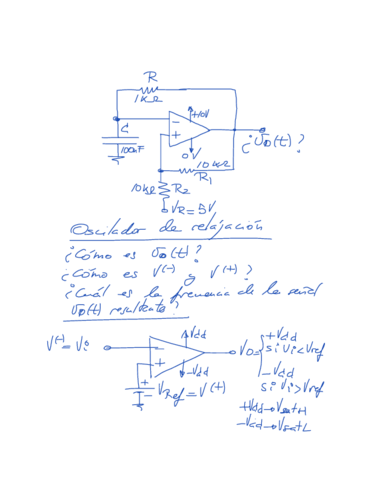 R
1KΩ
+10V
C
100nF
-
+
0V
¿Vo(t)?
10KΩ
R1
10KΩ
R2
VR=5V
Oscilador de relajación
¿Cómo es vo(t)?
¿Cómo es V(-) y V(+)?
¿Cuál es la frecuencia de la señal
vo(t) resultante?
+Vdd
V(-)=Vi
-
+
Vo= +Vdd
si Vi<Vref
-Vdd
si Vi>Vref
-Vdd
+
-
VRef=V(+)
+Vdd→VsatH
-Vdd→VsatL